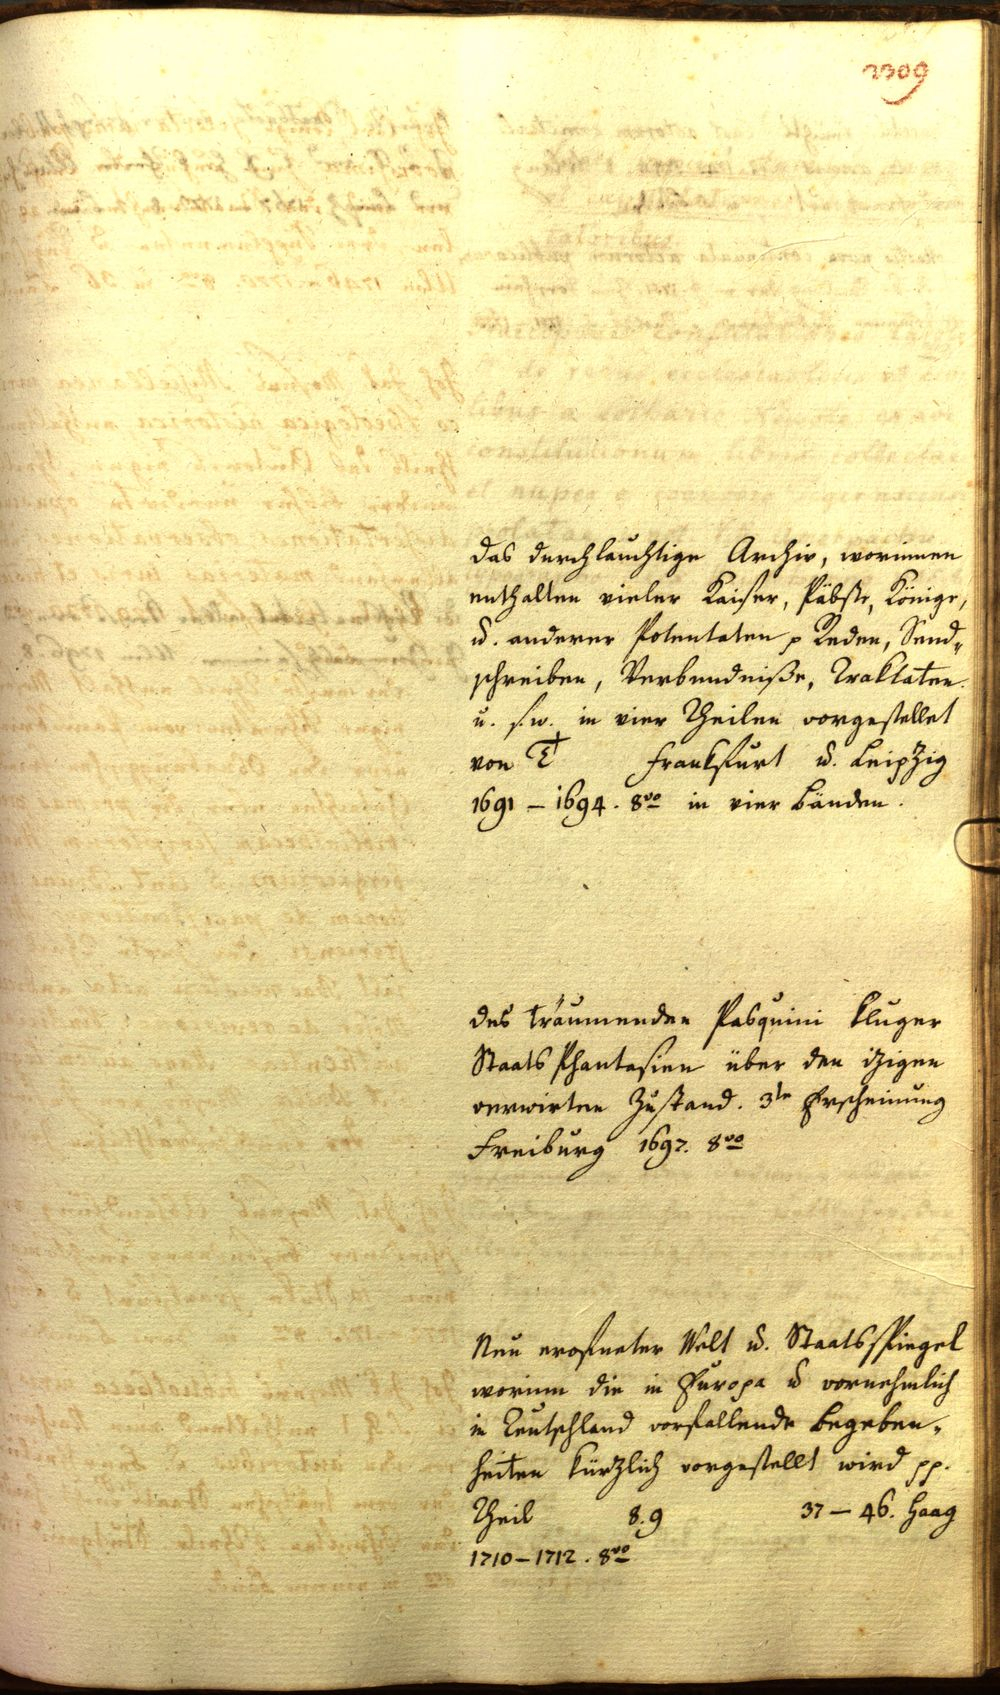 2309
Das durchlauchtige Archiv, worinnen
enthalten vieler Kaiser, Päbste, Könige,
u. anderer Potentaten p Reden, Send=
schreiben, Verbendniße, Traktaten
u. s. w. in vier Theilen vorgestellet
von Frankfurt u. Leipzig
1691 – 1694. 8vo in vier Bänden.
Des träumenden Pasquini kluger
Staats Phantasien über den itzigen
verwirten Zustand. 3te Erscheinung
Freiburg 1697. 8vo
Neu erofneter Welt u. Staatsspiegel
worinn die in Europa u vornehmlich
in Teutschland vorfallende Begeben=
heiten kürtzlich vorgestellt wird pp.
Theil 8. 9 37 – 46. Haag
1710 – 1712. 8vo